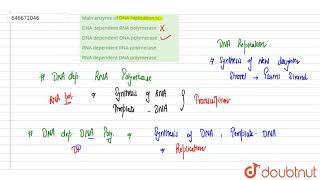 646672046
Main enzyme of DNA replication is:
DNA dependent RNA polymerase X
DNA dependent DNA polymerase ✓
RNA dependent RNA polymerase
RNA dependent DNA polymerase
DNA Replication
→ Synthesis of New daughter
Strand → Parent Strand
# DNA dep. RNA Polymerase
RNA pol. → Synthesis of RNA
Template - DNA } Transcription
# DNA dep. DNA Poly. → Synthesis of DNA, Template - DNA
→ Replication
doubtnut